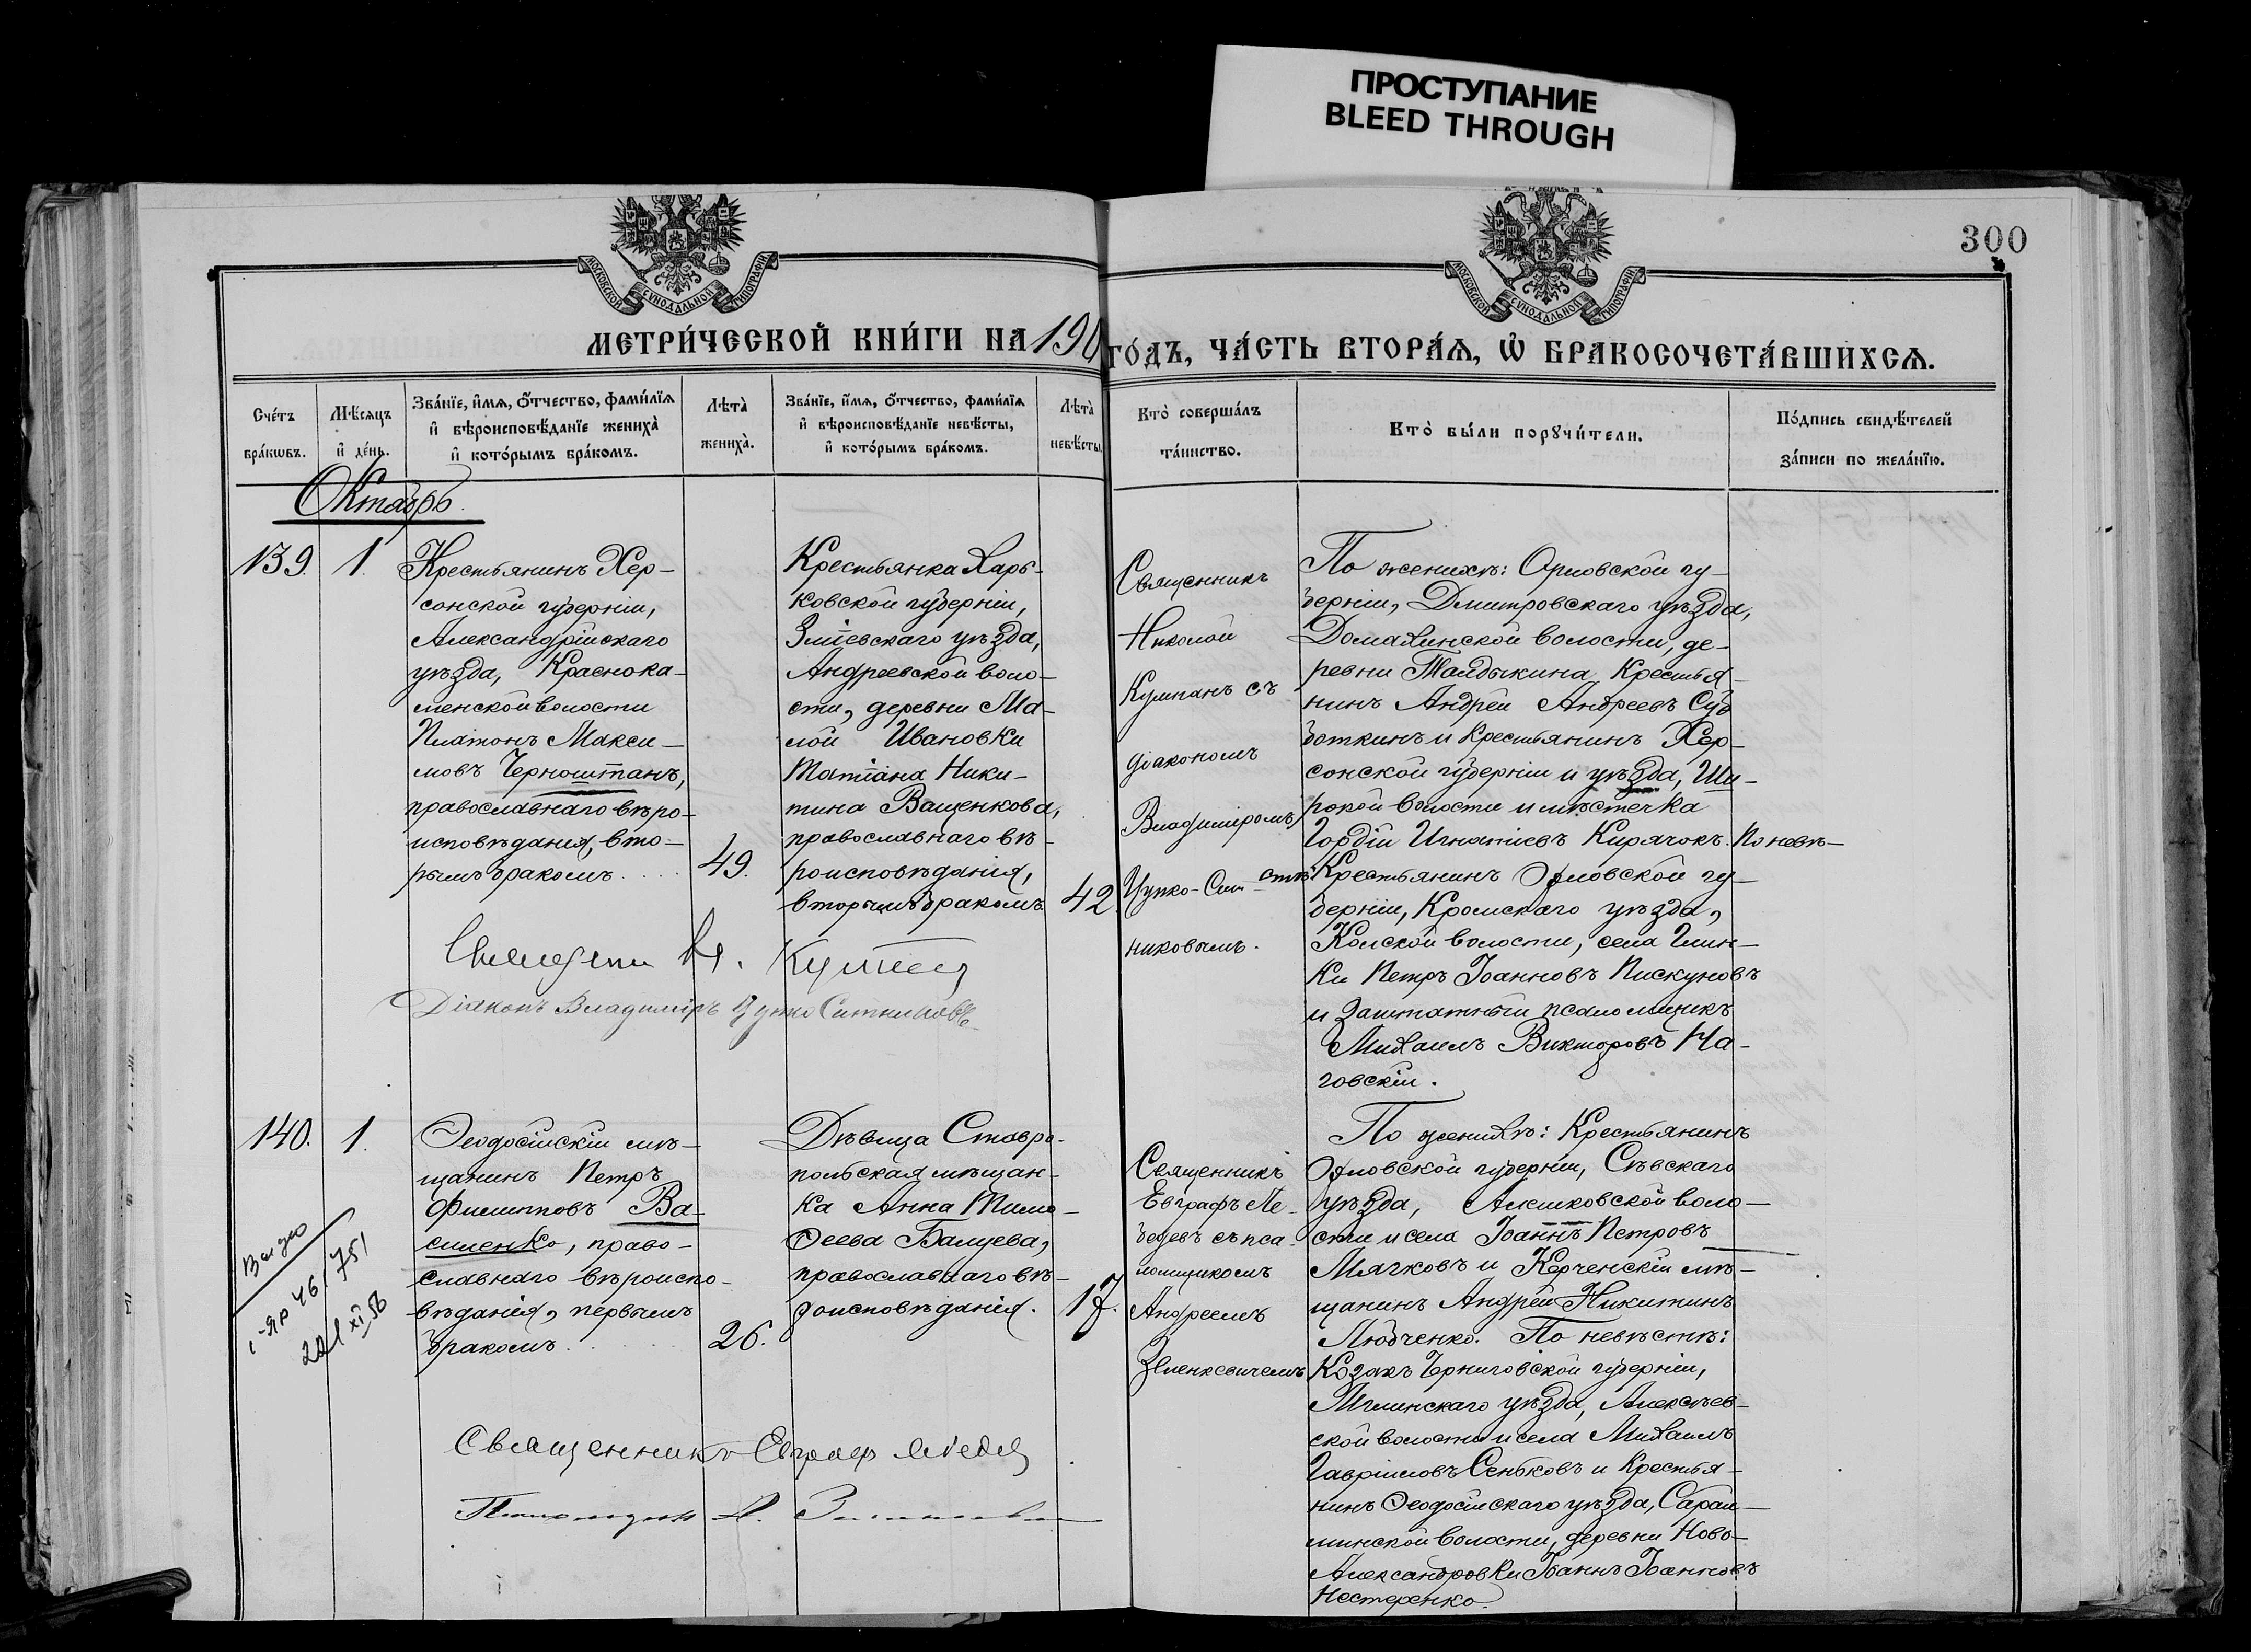 ПРОСТУПАНИЕ
BLEED THROUGH
МОСКОВСКОЙ СѴНОДАЛЬНОЙ ТИПОГРАФІИ
МОСКОВСКОЙ СѴНОДАЛЬНОЙ ТИПОГРАФІИ
300
МЕТРИ́ЧЕСКОЙ КНИ́ГИ НА 190
ГО́ДЪ, ЧА́СТЬ ВТОРА́Ѧ, Ѡ҆ БРАКОСОЧЕТА́ВШИХСѦ.
Сче́тъ
бра́кѡвъ.
Мѣ́сѧцъ
и҆ де́нь.
Зва́нїе, и҆́мѧ, ѻ҆́тчество, фами́лїѧ
и҆ вѣроисповѣ́данїе жениха̀
и҆ кото́рымъ бра́комъ.
Лѣта̀
жениха̀.
Зва́нїе, и҆́мѧ, ѻ҆́тчество, фами́лїѧ
и҆ вѣроисповѣ́данїе невѣ́сты,
и҆ кото́рымъ бра́комъ.
Лѣта̀
невѣ́сты
Кто̀ соверша́лъ
та́инство.
Кто̀ бы́ли порꙋчи́тели.
По́дпись свидѣ́телей
за́писи по жела́нїю.
Октябрь.
139.
1.
Крестьянинъ Хер-
сонской губерніи,
Александрійскаго
уѣзда, Краснока-
менской волости
Платонъ Макси-
мовъ Черноштанъ,
православнаго вѣро-
исповѣданія, вто-
рымъ бракомъ....
49.
Крестьянка Харь-
ковской губерніи,
Зміевскаго уѣзда,
Андреевской воло-
сти, деревни Ма-
лой Ивановки
Матіана Ники-
тина Ващенкова,
православнаго вѣ-
роисповѣданія,
вторымъ бракомъ
42.
Священникъ
Николай
Кумпанъ съ
діакономъ
Владиміромъ
Цупко-Сит-
никовымъ.
По женихѣ: Орловской гу-
берніи, Дмитровскаго уѣзда,
Домахинской волости, де-
ревни Талдыкина Крестья-
нинъ Андрей Андреевъ Суб
боткинъ и Крестьянинъ Хер-
сонской губерніи и уѣзда, Ши-
рокой волости и мѣстечка
Гордій Игнатіевъ Кирячокъ. По невѣ-
стѣ: Крестьянинъ Орловской гу-
берніи, Кромскаго уѣзда,
волости, села Глин-
ки Петръ Іоанновъ Пискуновъ
и заштатный псаломщикъ
Михаилъ Викторовъ На-
говскій.
Священникъ Н. Кумпанъ
Діаконъ Владиміръ Цупко Ситниковъ.
140.
1.
Ѳеодосійскій мѣ-
щанинъ Петръ
Филипповъ Ва-
силенко, право-
славнаго вѣроиспо-
вѣданія, первымъ
бракомъ.
26.
Дѣвица Ставро-
польская мѣщан-
ка Анна Тимо-
ѳеева Балуева,
православнаго вѣ-
роисповѣданія.
17.
Священникъ
Евграфъ Ле-
бедевъ съ пса-
ломщикомъ
Андреемъ
Зеленкевичемъ
По женихѣ: Крестьянинъ
Орловской губерніи, Сѣвскаго
уѣзда, Алешковской воло-
сти и села Іоаннъ Петровъ
Мягковъ и Керченскій мѣ-
щанинъ Андрей Никитинъ
Любченко. По невѣстѣ:
Козакъ Черниговской губерніи,
Мглинскаго уѣзда, Алексѣев-
ской волости и села Михаилъ
Гавріиловъ Сеньковъ и Крестья-
нинъ Ѳеодосійскаго уѣзда, Сарай-
минской волости, деревни Ново-
Александровки Іоаннъ Іоанновъ
Нестеренко.
Священникъ Евграфъ Лебедевъ
Псаломщикъ А.